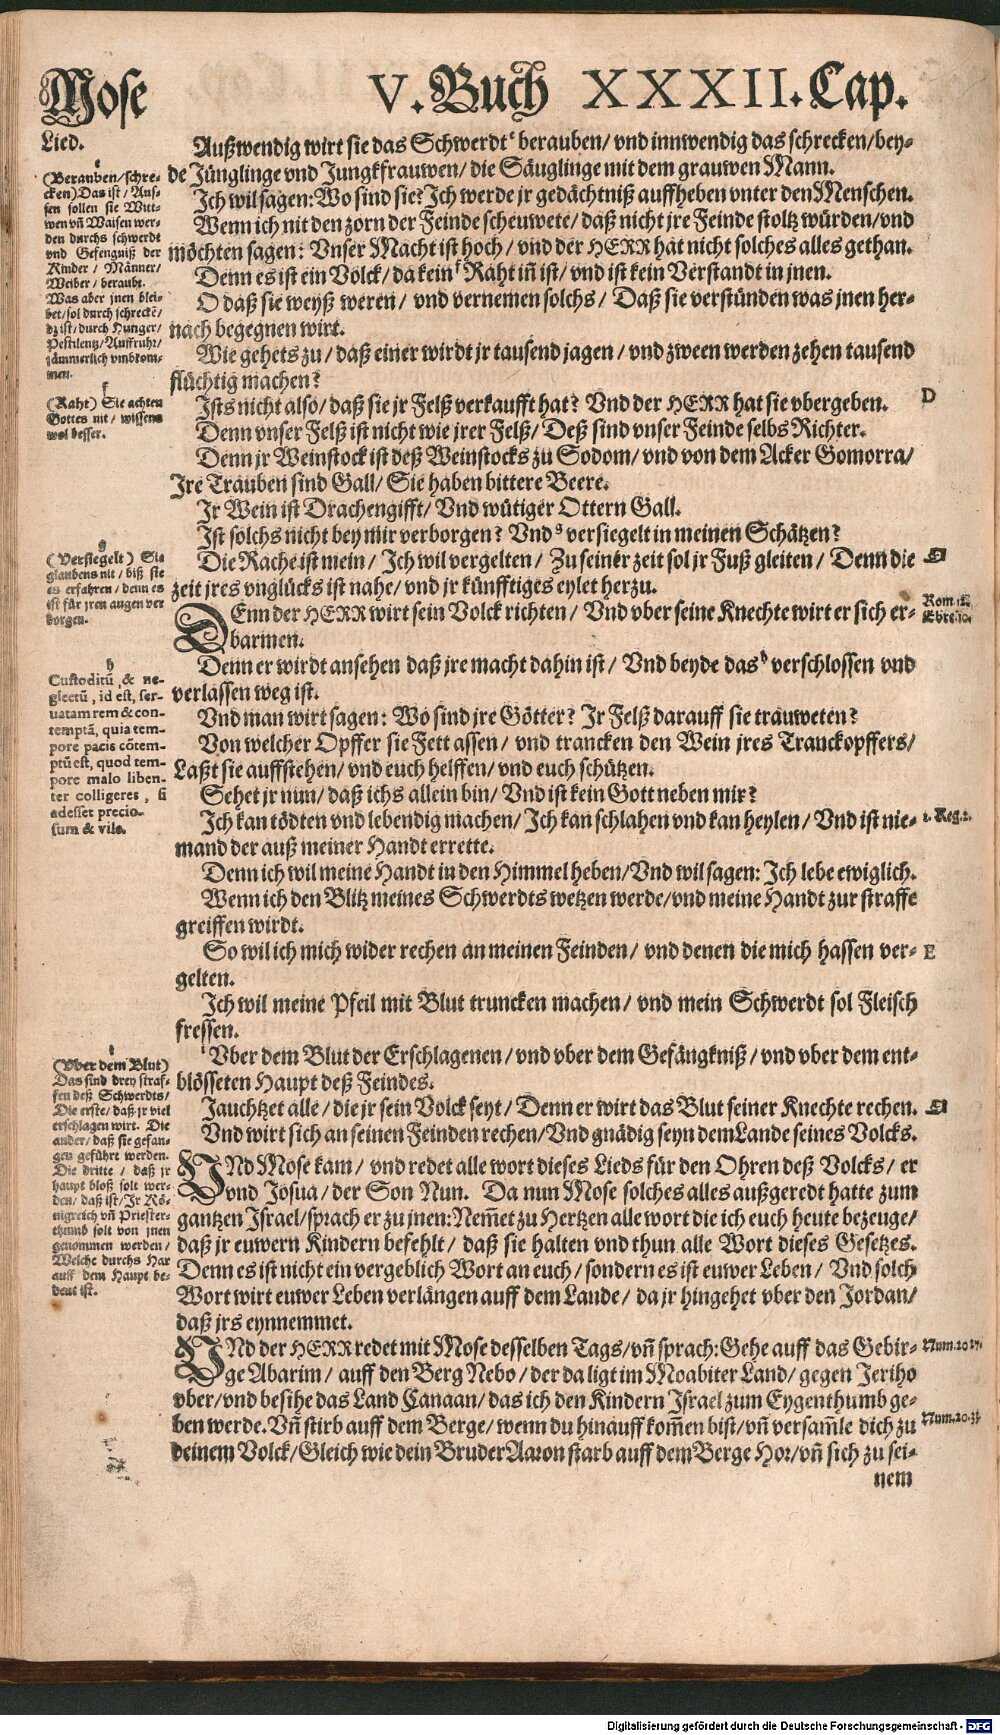 Mose V. Buch XXXII. Cap.
Lied.
Außwendig wirt sie das Schwerdt e berauben/ vnd innwendig das schrecken/ bey-
de Jünglinge vnd Jungkfrauwen/ die Säuglinge mit dem grauwen Mann.
Ich wil sagen: Wo sind sie? Ich werde jr gedächtniß auffheben vnter den Menschen.
Wenn ich nit den zorn der Feinde scheuwete/ daß nicht jre Feinde stoltz würden/ vnd
möchten sagen: Vnser Macht ist hoch/ vnd der HERR hat nicht solches alles gethan.
Denn es ist ein Volck/ da kein f Raht iñ ist/ vnd ist kein Verstandt in jnen.
O daß sie weyß weren/ vnd vernemen solchs/ Daß sie verstünden was jnen her-
nach begegnen wirt.
Wie gehets zu/ daß einer wirdt jr tausend jagen/ vnd zween werden zehen tausend
flüchtig machen?
Ists nicht also/ daß sie jr Felß verkaufft hat? Vnd der HERR hat sie vbergeben.
Denn vnser Felß ist nicht wie jrer Felß/ Deß sind vnser Feinde selbs Richter.
Denn jr Weinstock ist deß Weinstocks zu Sodom/ vnd von dem Acker Gomorra/
Ire Trauben sind Gall/ Sie haben bittere Beere.
Ir Wein ist Drachengifft/ Vnd wütiger Ottern Gall.
Ist solchs nicht bey mir verborgen? Vnd g versiegelt in meinen Schätzen?
Die Rache ist mein/ Ich wil vergelten/ Zu seiner zeit sol jr Fuß gleiten/ Denn die
zeit jres vnglücks ist nahe/ vnd jr künfftiges eylet herzu.
DEnn der HERR wirt sein Volck richten/ Vnd vber seine Knechte wirt er sich er-
barmen.
Denn er wirdt ansehen daß jre macht dahin ist/ Vnd beyde das h verschlossen vnd
verlassen weg ist.
Vnd man wirt sagen: Wo sind jre Götter? Ir Felß darauff sie trauweten?
Von welcher Opffer sie Fett assen/ vnd trancken den Wein jres Tranckopffers/
Laßt sie auffstehen/ vnd euch helffen/ vnd euch schützen.
Sehet jr nun/ daß ichs allein bin/ Vnd ist kein Gott neben mir?
Ich kan tödten vnd lebendig machen/ Ich kan schlahen vnd kan heylen/ Vnd ist nie-
mand der auß meiner Handt errette.
Denn ich wil meine Handt in den Himmel heben/ Vnd wil sagen: Ich lebe ewiglich.
Wenn ich den Blitz meines Schwerdts wetzen werde/ vnd meine Handt zur straffe
greiffen wirdt.
So wil ich mich wider rechen an meinen Feinden/ vnd denen die mich hassen ver-
gelten.
Ich wil meine Pfeil mit Blut truncken machen/ vnd mein Schwerdt sol Fleisch
fressen.
i Vber dem Blut der Erschlagenen/ vnd vber dem Gefängkniß/ vnd vber dem ent-
blösseten Haupt deß Feindes.
Jauchtzet alle/ die jr sein Volck seyt/ Denn er wirt das Blut seiner Knechte rechen.
Vnd wirt sich an seinen Feinden rechen/ Vnd gnädig seyn dem Lande seines Volcks.
VNd Mose kam/ vnd redet alle wort dieses Lieds für den Ohren deß Volcks/ er
vnd Josua/ der Son Nun. Da nun Mose solches alles außgeredt hatte zum
gantzen Israel/ sprach er zu jnen: Nem̃et zu Hertzen alle wort die ich euch heute bezeuge/
daß jr euwern Kindern befehlt/ daß sie halten vnd thun alle Wort dieses Gesetzes.
Denn es ist nicht ein vergeblich Wort an euch/ sondern es ist euwer Leben/ Vnd solch
Wort wirt euwer Leben verlängen auff dem Lande/ da jr hingehet vber den Jordan/
daß jrs eynnemmet.
VNd der HERR redet mit Mose desselben Tags/ vñ sprach: Gehe auff das Gebir-
ge Abarim/ auff den Berg Nebo/ der da ligt im Moabiter Land/ gegen Jeriho
vber/ vnd besihe das Land Canaan/ das ich den Kindern Israel zum Eygenthumb ge-
ben werde. Vñ stirb auff dem Berge/ wenn du hinauff kom̃en bist/ vñ versam̃le dich zu
deinem Volck/ Gleich wie dein Bruder Aaron starb auff dem Berge Hor/ vñ sich zu sei-
nem
e
(Berauben/ schre-
cken) Das ist/ Aus-
sen sollen sie Witt-
wen vñ Waisen wer-
den durchs schwerdt
vnd Gefengniß der
Kinder/ Männer/
Weiber/ beraubt.
Was aber jnen blei-
bet/ sol durch schreckē/
dz ist/ durch Hunger/
Pestilentz/ Auffruhr/
jämmerlich vmbkom-
men.
f
(Raht) Sie achten
Gottes nit/ wissens
wol besser.
g
(Versiegelt) Sie
glaubens nit/ biß sie
es erfahren/ denn es
ist für jren augen ver
borgen.
h
Custoditũ, & ne-
glectũ, id est, ser-
uatam rem & con-
temptã, quia tem-
pore pacis cõtem-
ptũ est, quod tem-
pore malo liben-
ter colligeres, si
adesset precio-
sum & vile.
i
(Vber dem Blut)
Das sind drey straf-
fen deß Schwerdts/
Die erste/ daß jr viel
erschlagen wirt. Die
ander/ daß sie gefan-
gen geführt werden.
Die dritte/ daß jr
haupt bloß solt wer-
den/ daß ist/ Ir Kö-
nigreich vñ Priester-
thumb solt von jnen
genommen werden/
Welche durchs Har
auff dem Haupt be-
deut ist.
D
Rom. 12.
Ebre. 10.
1. Reg. 2.
E
Num. 20 27.
Num. 20. 33
Digitalisierung gefördert durch die Deutsche Forschungsgemeinschaft - DFG